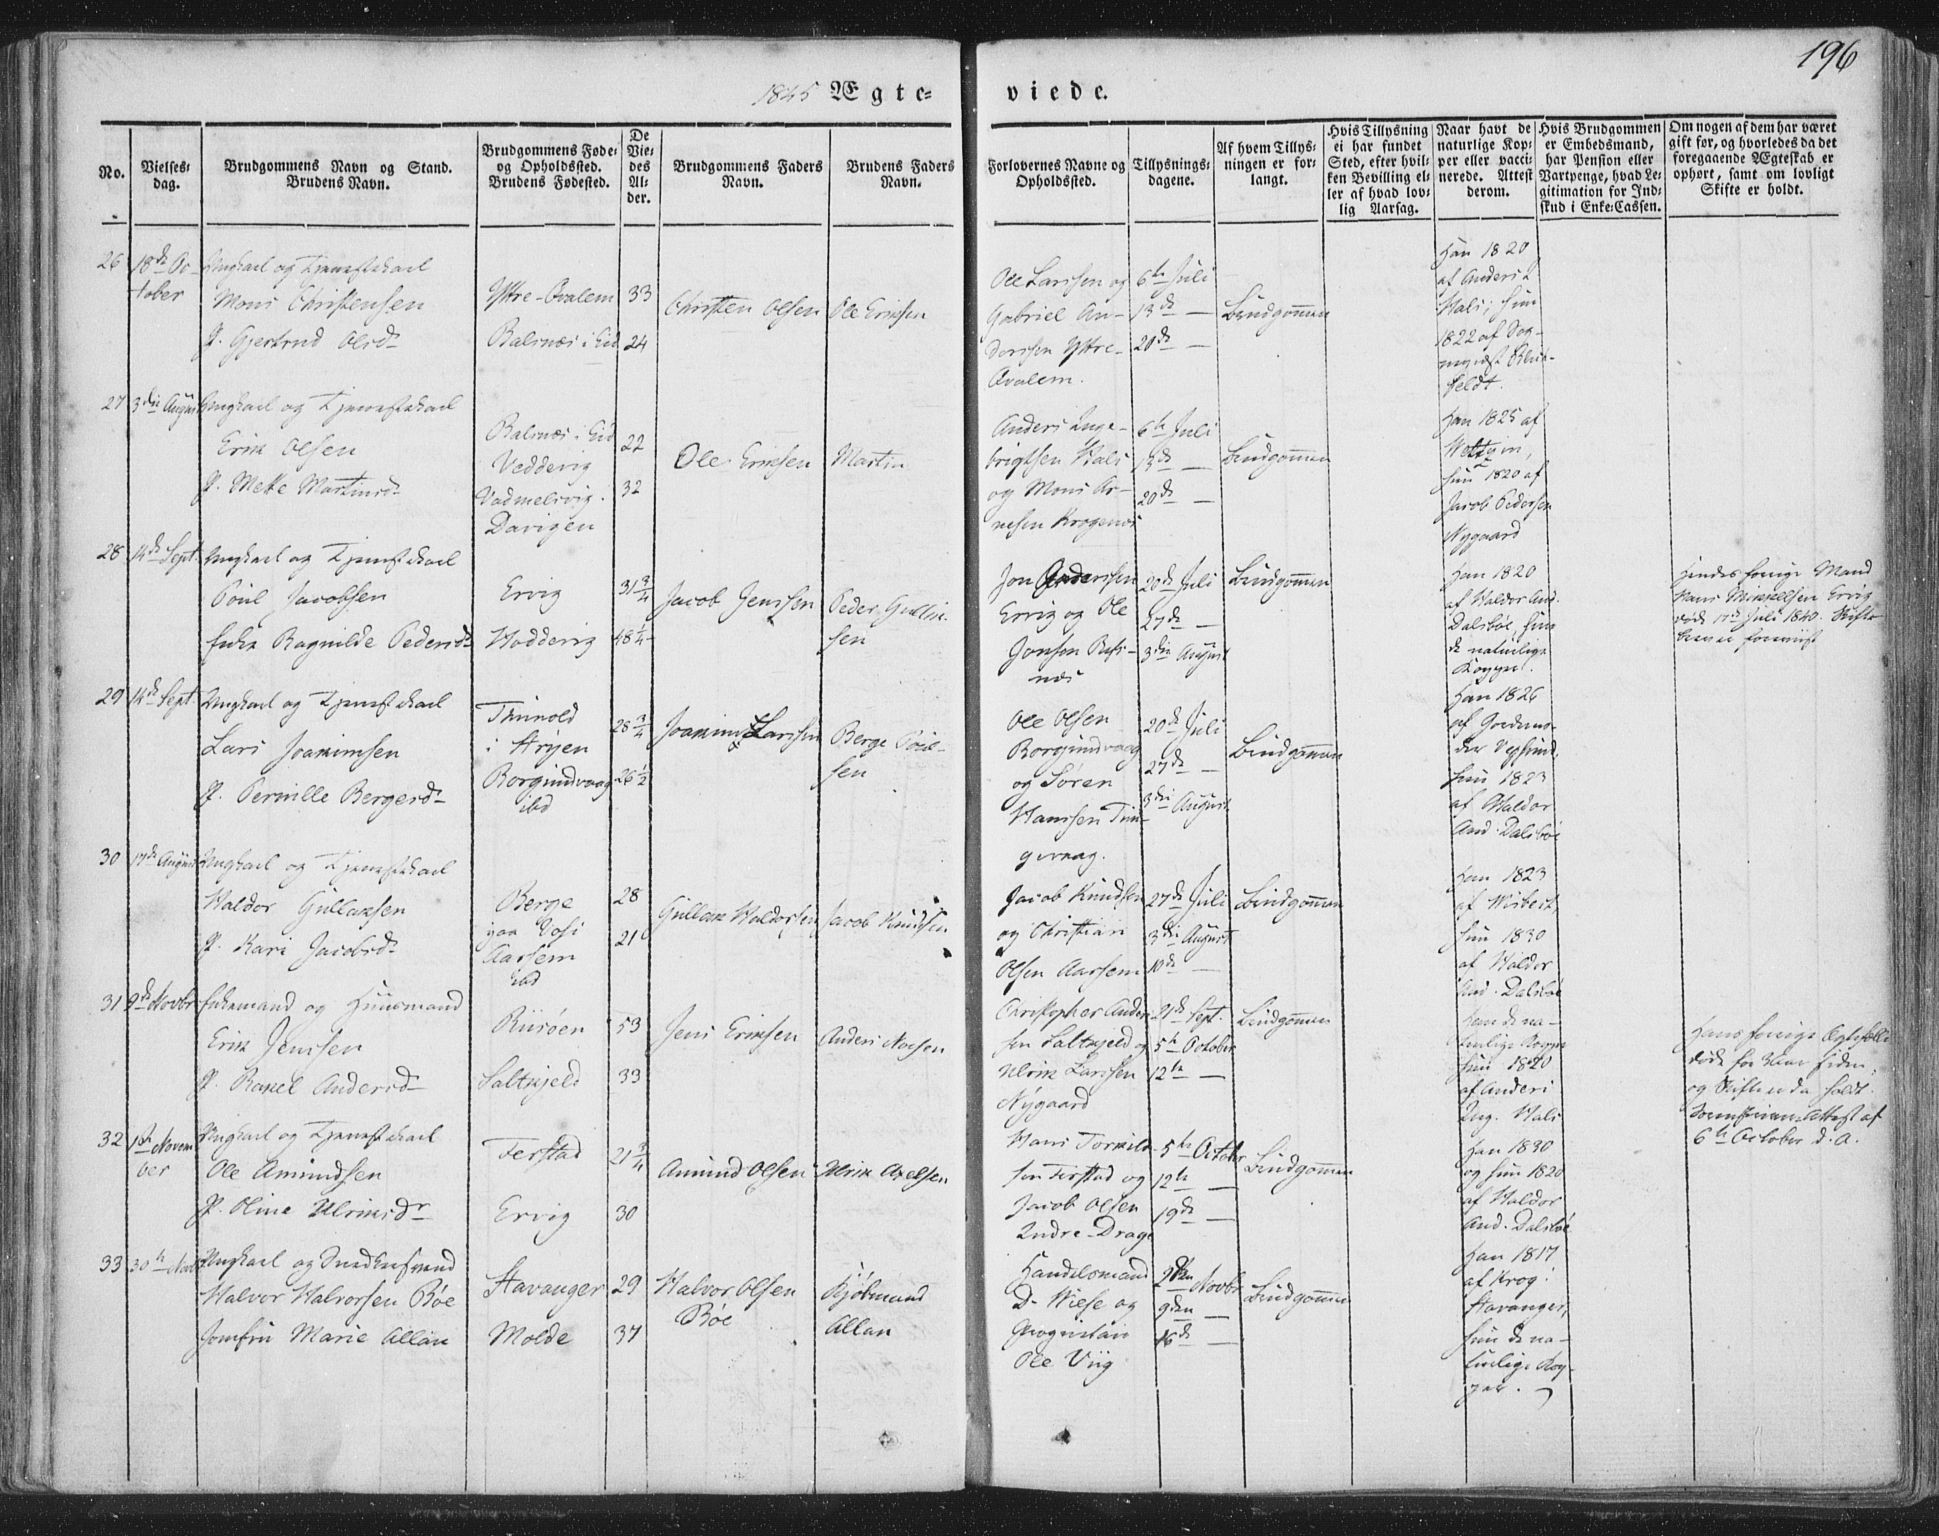 196
1845 Ægte-
viede.
No.
Vielses-
dag.
Brudgommens Navn og Stand.
Brudens Navn.
Brudgommens Føde-
og Opholdsted.
Brudens Fødested.
De
Vie-
des
Al-
der.
Brudgommens Faders
Navn.
Brudens Faders
Navn.
Forlovernes Navne og
Opholdssted.
Tillysnings-
dagene.
Af hvem Tillys-
ningen er for-
langt.
Hvis Tillysning
ei har fundet
Sted, efter hvil-
ken Bevilling el-
ler af hvad lov-
lig Aarsag.
Naar havt de
naturlige Kop-
per eller vacci-
nerede. Attest
derom.
Hvis Brudgommen
er Embedsmand,
har Pension eller
Vartpenge, hvad Le-
gitimation for Ind-
skud i Enke-Cassen.
Om nogen af dem har været
gift før, og hvorledes da det
foregaaende Ægteskab er
ophørt, samt om lovligt
Skifte er holdt.
26
18de Oc-
tober
Ungkarl og Tjenestekarl
Mons Christensen
P. Gjertrud Olsd
Yttre-Qvalem
Balsnæs i Eid
33
24
Christen Olsen
Ole Eriksen
Ole Larssen og
Gabriel An-
derssen Yttre-
Qvalem.
6te Juli
13de
20de
Brudgommen
Han 1820
af Anders I.
Hals; hun
1822 af Sog-
nepræst
27
3die August
Ungkarl og Tjenestekarl
Erik Olsen
P. Mette Martinsd
Balsnæs i Eid
Vedderig
Vadmelsvig.
Davigen
22
32
Ole Eriksen
Martin
Anders Inge-
brigtsen Hals
og Mons Ar-
nesen Kragenæs
6te Juli
13de
20de
Brudgommen
Han 1825 af
hun 1820 af
Jacob Pedersen
Nygaard
28
14de Sept.
Ungkarl og Tjenestekarl
Poul Jacobsen
Enke Ragnilde Pedersd
Ervig
Hodderig
31 3/4
48 1/4
Jacob Jenssen
Peder Gullik-
sen
Jon Anderssen
Ervig og Ole
Jonsen Refs-
næs
20de Juli
27de
3die August
Brudgommen
Han 1820
af Haldor And.
Dalsböe, hun
de naturlige
Kopper.
Hendes forrige Mand
Hans Mikkelsen Ervig
døde 17de Juli 1840. Skifte-
brev er forevist
29
14de Sept.
Ungkarl og Tjenestekarl
Lars Joakimsen
P. Pernille Bergersd
Thunold
i Stryen
Borgundvaag
ibd
28 3/4
26 1/2
Joakim Larssen
Berge Poul-
sen
Ole Olsen
Borgundvaag
og Søren
Hanssen Tun-
gevaag.
20de Juli
27de
3die August
Brudgommen
Han 1826
af Gjordemo-
der
hun 1823
af Haldor
And. Dalsböe
30
17de August
Ungkarl og Tjenestekarl
Haldor Gullaksen
P. Kari Jacobsd
Berge
paa Voss
Aarsem
ibd
28
21
Gullak Haldorsen
Jacob Knudsen
Jacob Knudsen
og Christian
Olsen Aarsem
27de Juli
3die August
10de
Brudgommen
Han 1823
af Wisbert,
hun 1830
af Haldor
And. Dalsböe
31
9de Novbr
Enkemand og Huusmand
Erik Jenssen
P. Rakel Andersd
Riisöen
Saltkjeld
53
33
Jens Eriksen
Anders Olsen
Christopher Ander-
sen Saltkjeld og
Ulrik Larssen
Nygaard
21de Sept.
5te October
12te
Brudgommen
Han de na-
turlige Kopper
hun 1820
af Anders
Ing. Hals
Hans forrige Ægtefælle
døde for 3 Aar siden,
og Skifte er da holdt.
Sorenskriver-Attest af
6te October d. A.
32
1ste Novem
ber
Ungkarl og Tjenestekarl
Ole Amundsen
P. Oline Ulriksdr
Ferstad
Ervig
21 3/4
30
Amund Olsen
Ulrik Axelsen
Hans Tormod-
sen Ferstad og
Jacob Olsen
Indre-Drage
5te October
12te
19de
Brudgommen
Han 1830
og hun 1820
af Haldor
And. Dalsböe
33
30te Nov.
Ungkarl og Snedkersvend
Halvor Halvorsen Böe
Jomfru Marie Allan
Stavanger
Molde
29
37
Halvor Olsen
Böe
Kjöbmand
Allan
Handelsmand
D. Wiese og
Ole Viig
2den Novbr
9den
16de
Brudgommen
Han 1817
af Krog i
Stavanger,
hun de na-
turlige Kop-
per.